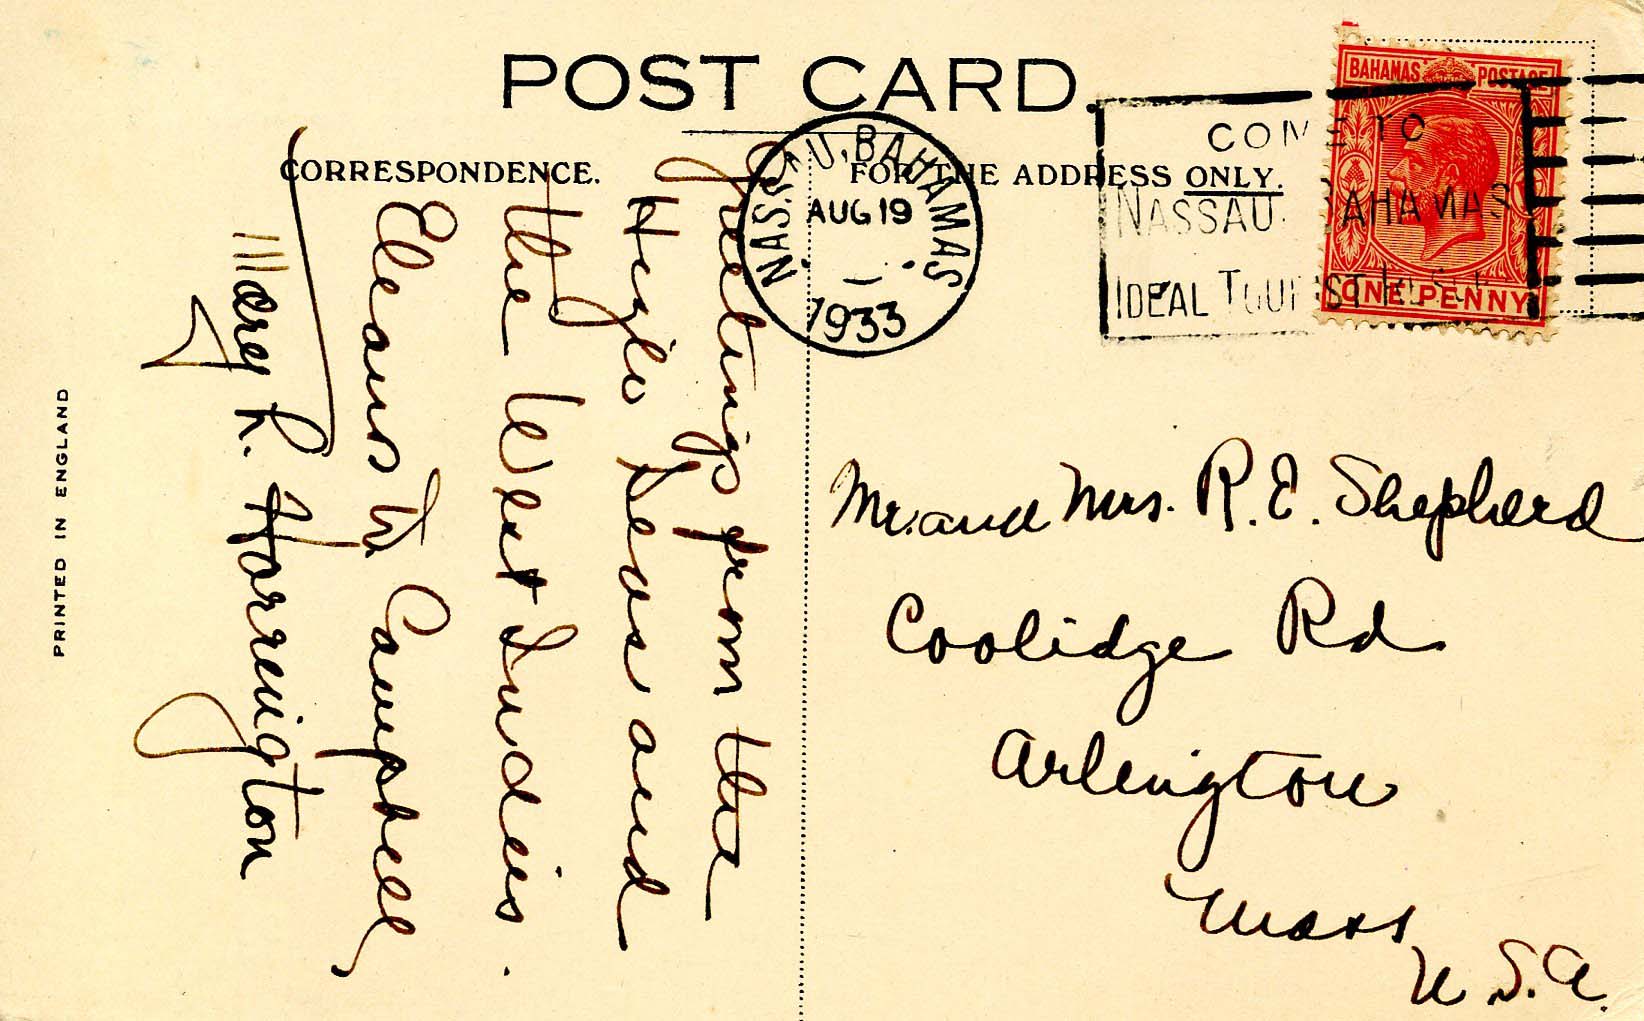 POST CARD.
CORRESPONDENCE.
FOR THE ADDRESS ONLY.
NASSAU, BAHAMAS
AUG 19
1933
COME TO
NASSAU. BAHAMAS
IDEAL TOURIST
BAHAMAS POSTAGE
ONE PENNY
Greetings from the
High Seas and
the West Indies.
Eleanor M. Campbell
Mary R. Harrington
Mr. and Mrs. R. E. Shepherd
Coolidge Rd
Arlington
Mass
U.S.A.
PRINTED IN ENGLAND